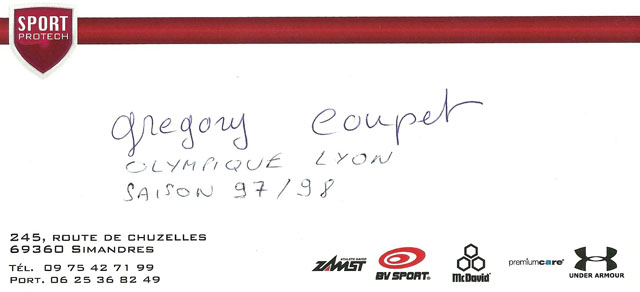 SPORT
PROTECH
gregory coupet
OLYMPIQUE LYON
SAISON 97/98
245, ROUTE DE CHUZELLES
69360 SIMANDRES
TÉL. 09 75 42 71 99
PORT. 06 25 36 82 49
ZAMST
BV SPORT®
McDavid
premiumcare®
UNDER ARMOUR